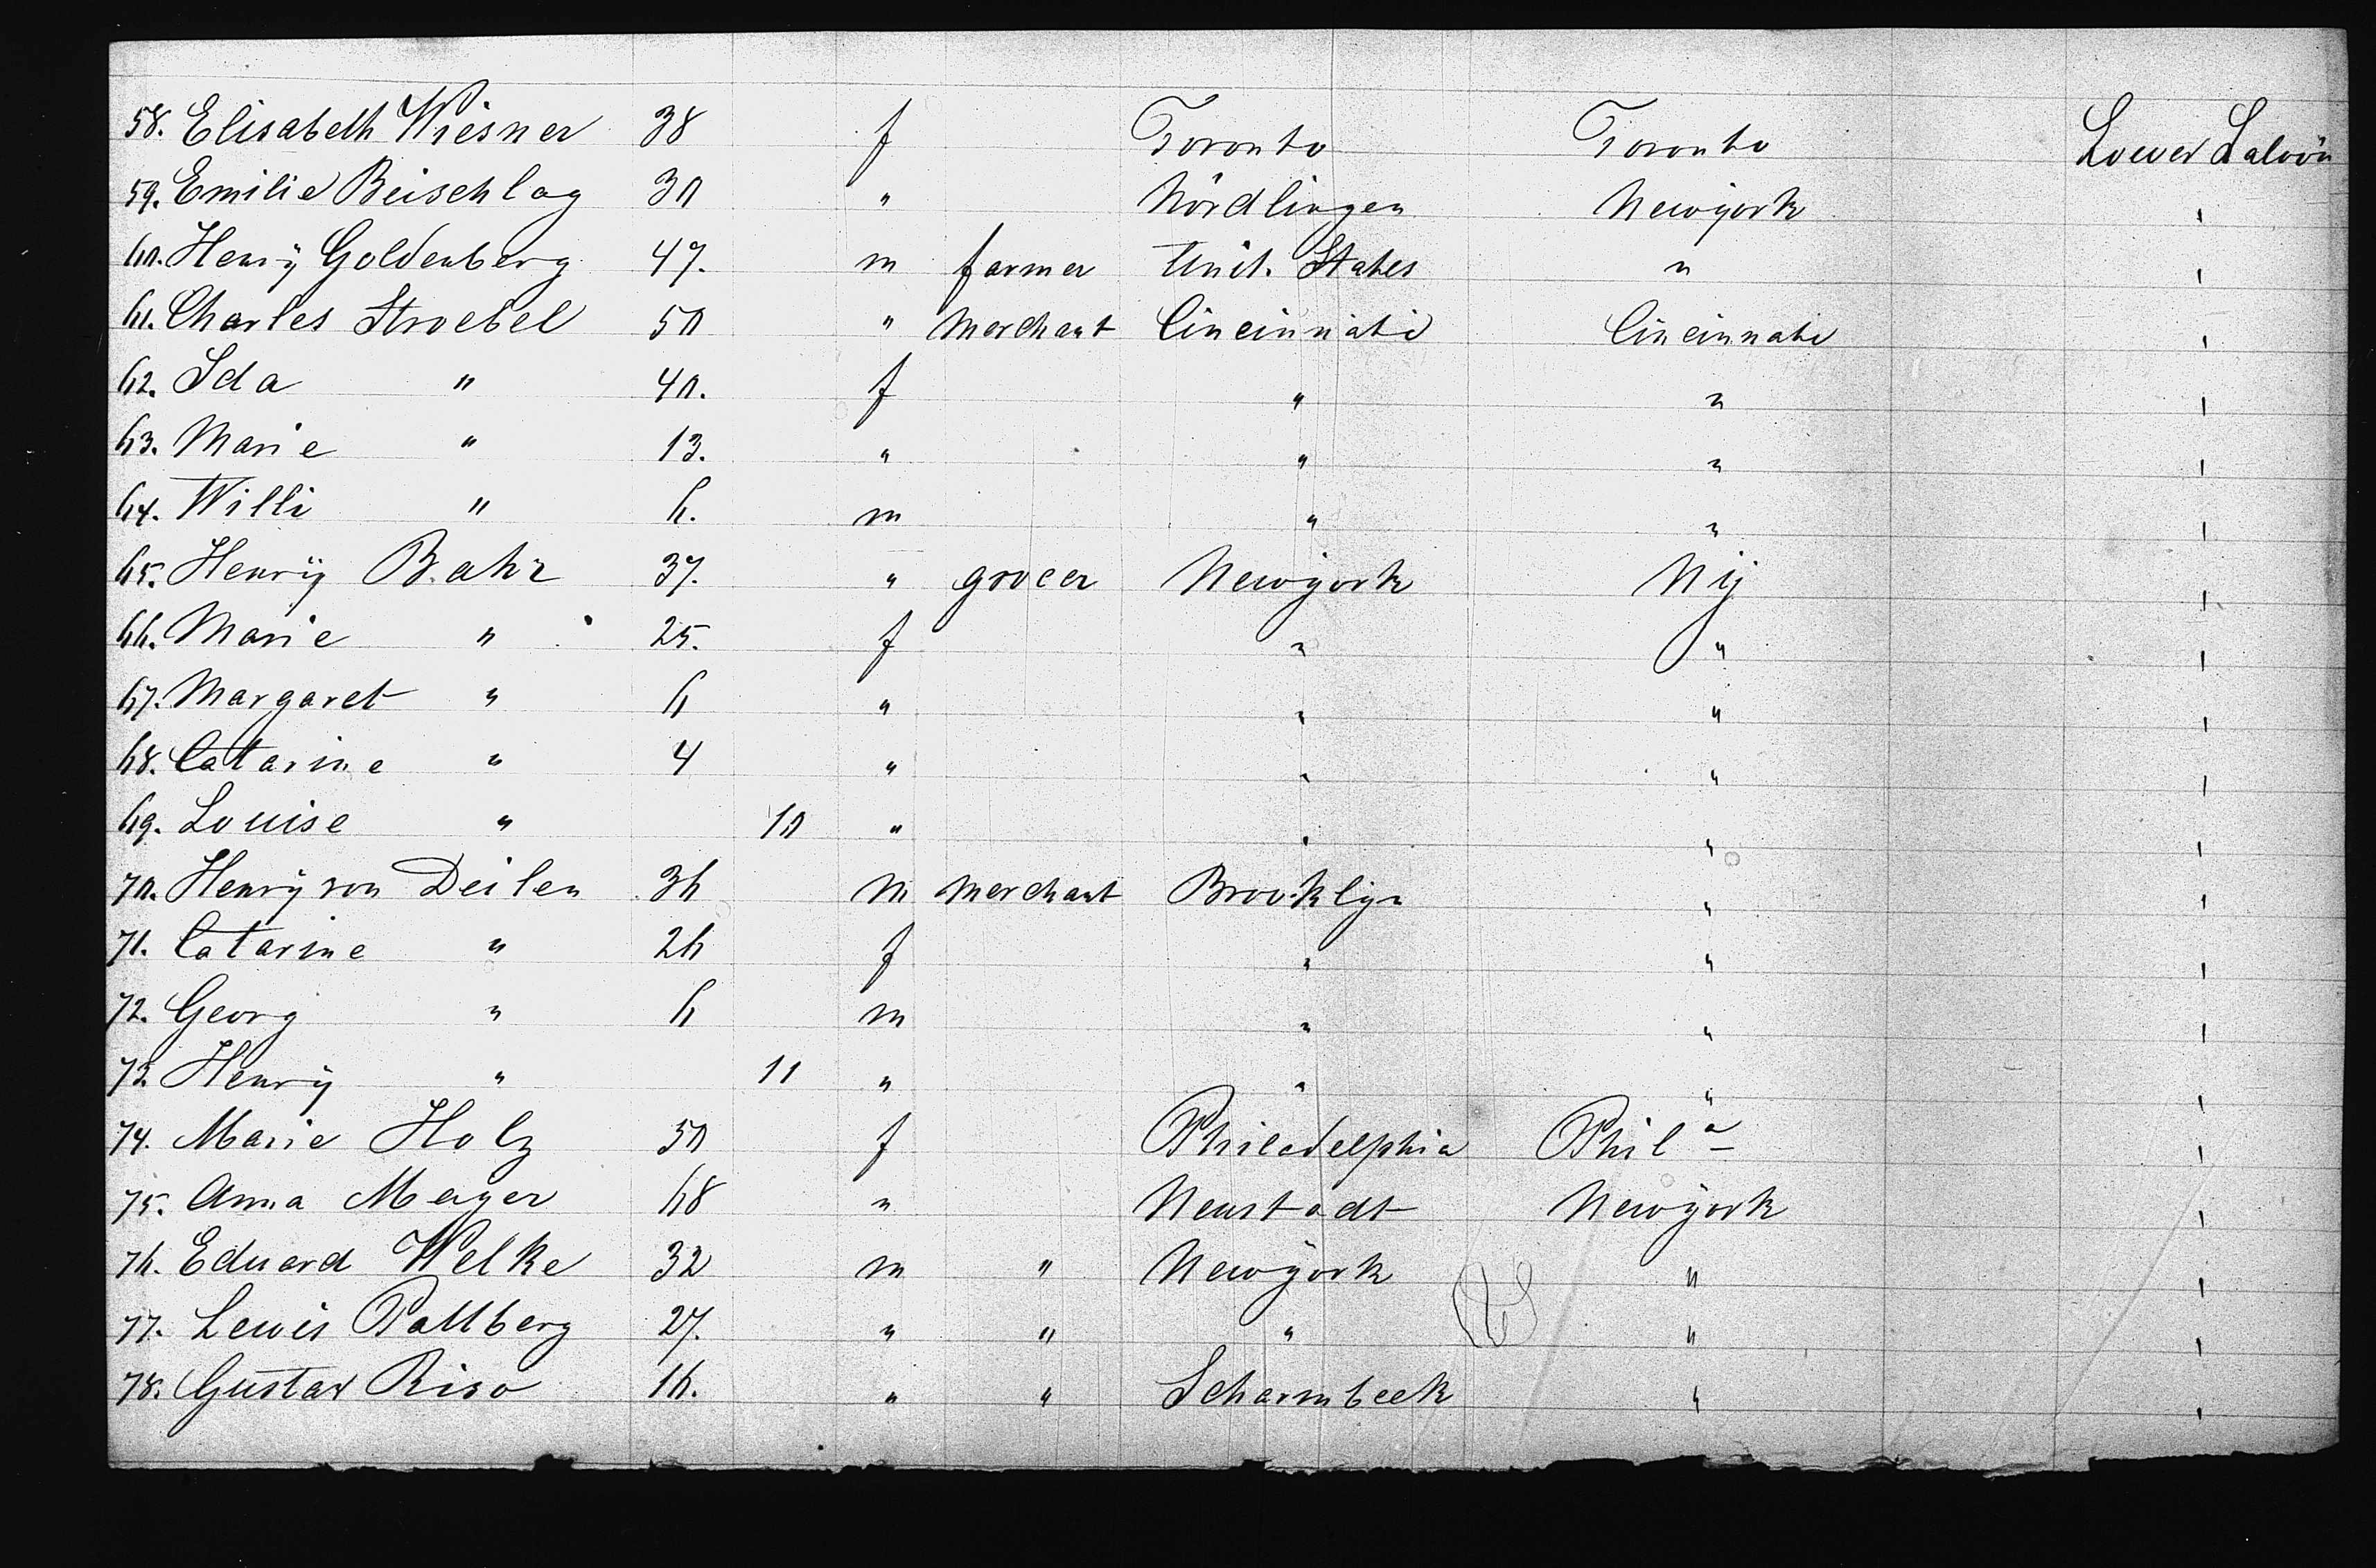 58. Elisabeth Wiesner 38 f Toronto Toronto Lower Saloon
59. Emilie Beischlag 30 " Nördlingen Newyork "
60. Henry Goldenberg 47. m farmer Unit. States " "
61. Charles Stroebel 50 " Merchant Cincinnati Cincinnati "
62. Ida " 40. f " " "
63. Marie " 13. " " " "
64. Willi " 6. m " " "
65. Henry Bahr 37. " grocer Newyork NY "
66. Marie " 25. f " " "
67. Margaret " 6 " " " "
68. Catarine " 4 " " " "
69. Louise " 10 " " " "
70. Henry von Deilen 36 m Merchant Brooklyn " "
71. Catarine " 26 f " " "
72. Georg " 6 m " " "
73. Henry " 11 " " " "
74. Marie Holz 50 f Philadelphia Phila "
75. Anna Meyer 68 " Neustadt Newyork "
76. Eduard Welke 32 m " Newyork " "
77. Lewis Pallberg 27. " " " " "
78. Gustav Riso 16. " " Scharmbeck " "